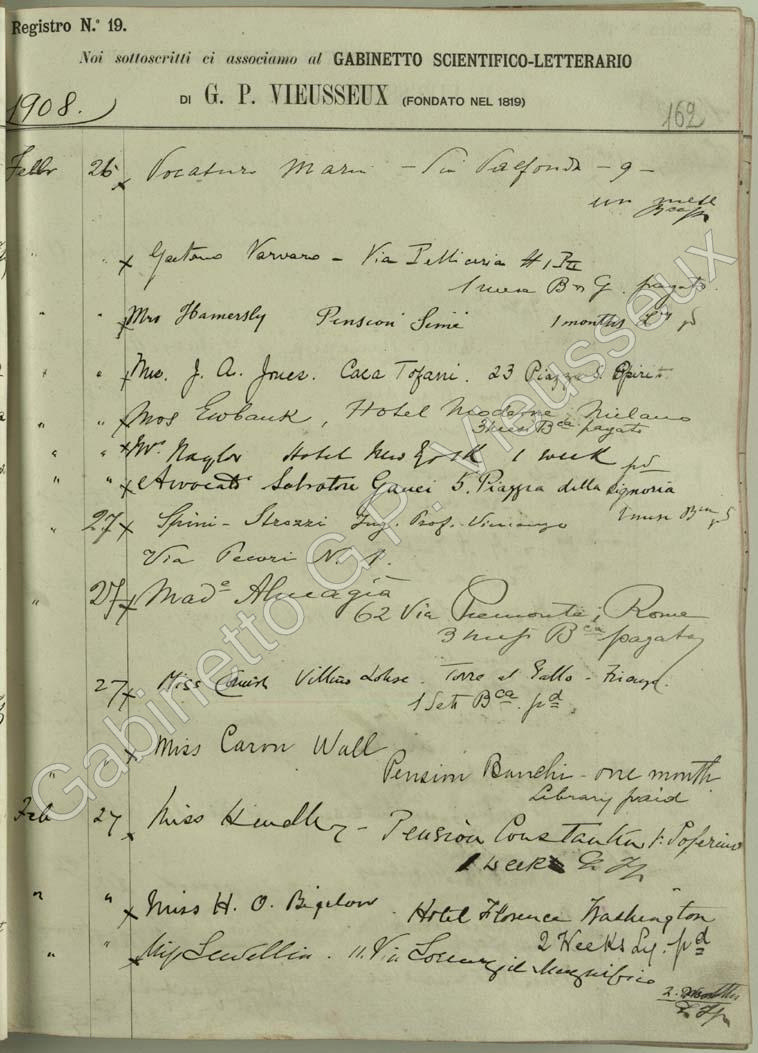 Registro N.° 19.
Noi sottoscritti ci associamo al GABINETTO SCIENTIFICO-LETTERARIO
DI G. P. VIEUSSEUX (FONDATO NEL 1819)
1908.
162
Febb 26 x Vocaturo Maria - Via Valfonda - 9 -
un mese
" " x Gaetano Varvaro - Via Pelliceria
1 mese B e G. pagato.
" " x Mrs Hamersly Pension Simi 1 months
" " x Mrs. J. A. Jones. Casa Tofani. 23 Piazza S. Spirito
" " x Mrs Ewbank, Hotel Moderne, Milano
3 mesi Bca pagato
" " x Mrs Naylor Hotel New York 1 week pd
" " x Avvocato Salvatore Gauci 5. Piazza della Signoria
1 mese
27 x Spini-Strozzi Ing. Prof. Vincenzo
Via Pecori N. 1.
" 27 x Made Almagià
62 Via Piemonte, Rome
3 mesi Bca pagato
27 x Miss Villino Torre al Gallo - Firenze.
1 Sett Bca. pd.
" " x Miss Caron Wall
Pension Banchi - one month
Library paid
Feb 27 x Miss Hendley - Pension Constantin
1 week
" " x Miss H. O. Bigelow. Hotel Florence Washington
2 Weeks Ly. pd
" " x Miss Lewellin. 11. Via Lorenzo il Magnifico
2 months
Gabinetto G.P. Vieusseux